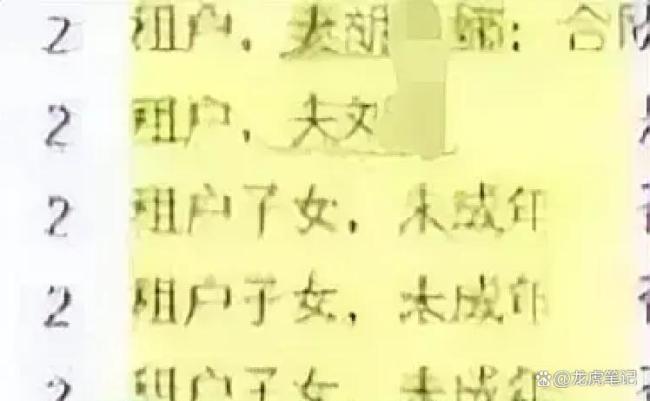 2 租户，夫胡 师：合欣
2 租户，夫刘
2 租户子女，未成年
2 租户子女，未成年
2 租户子女，未成年
龙虎笔记